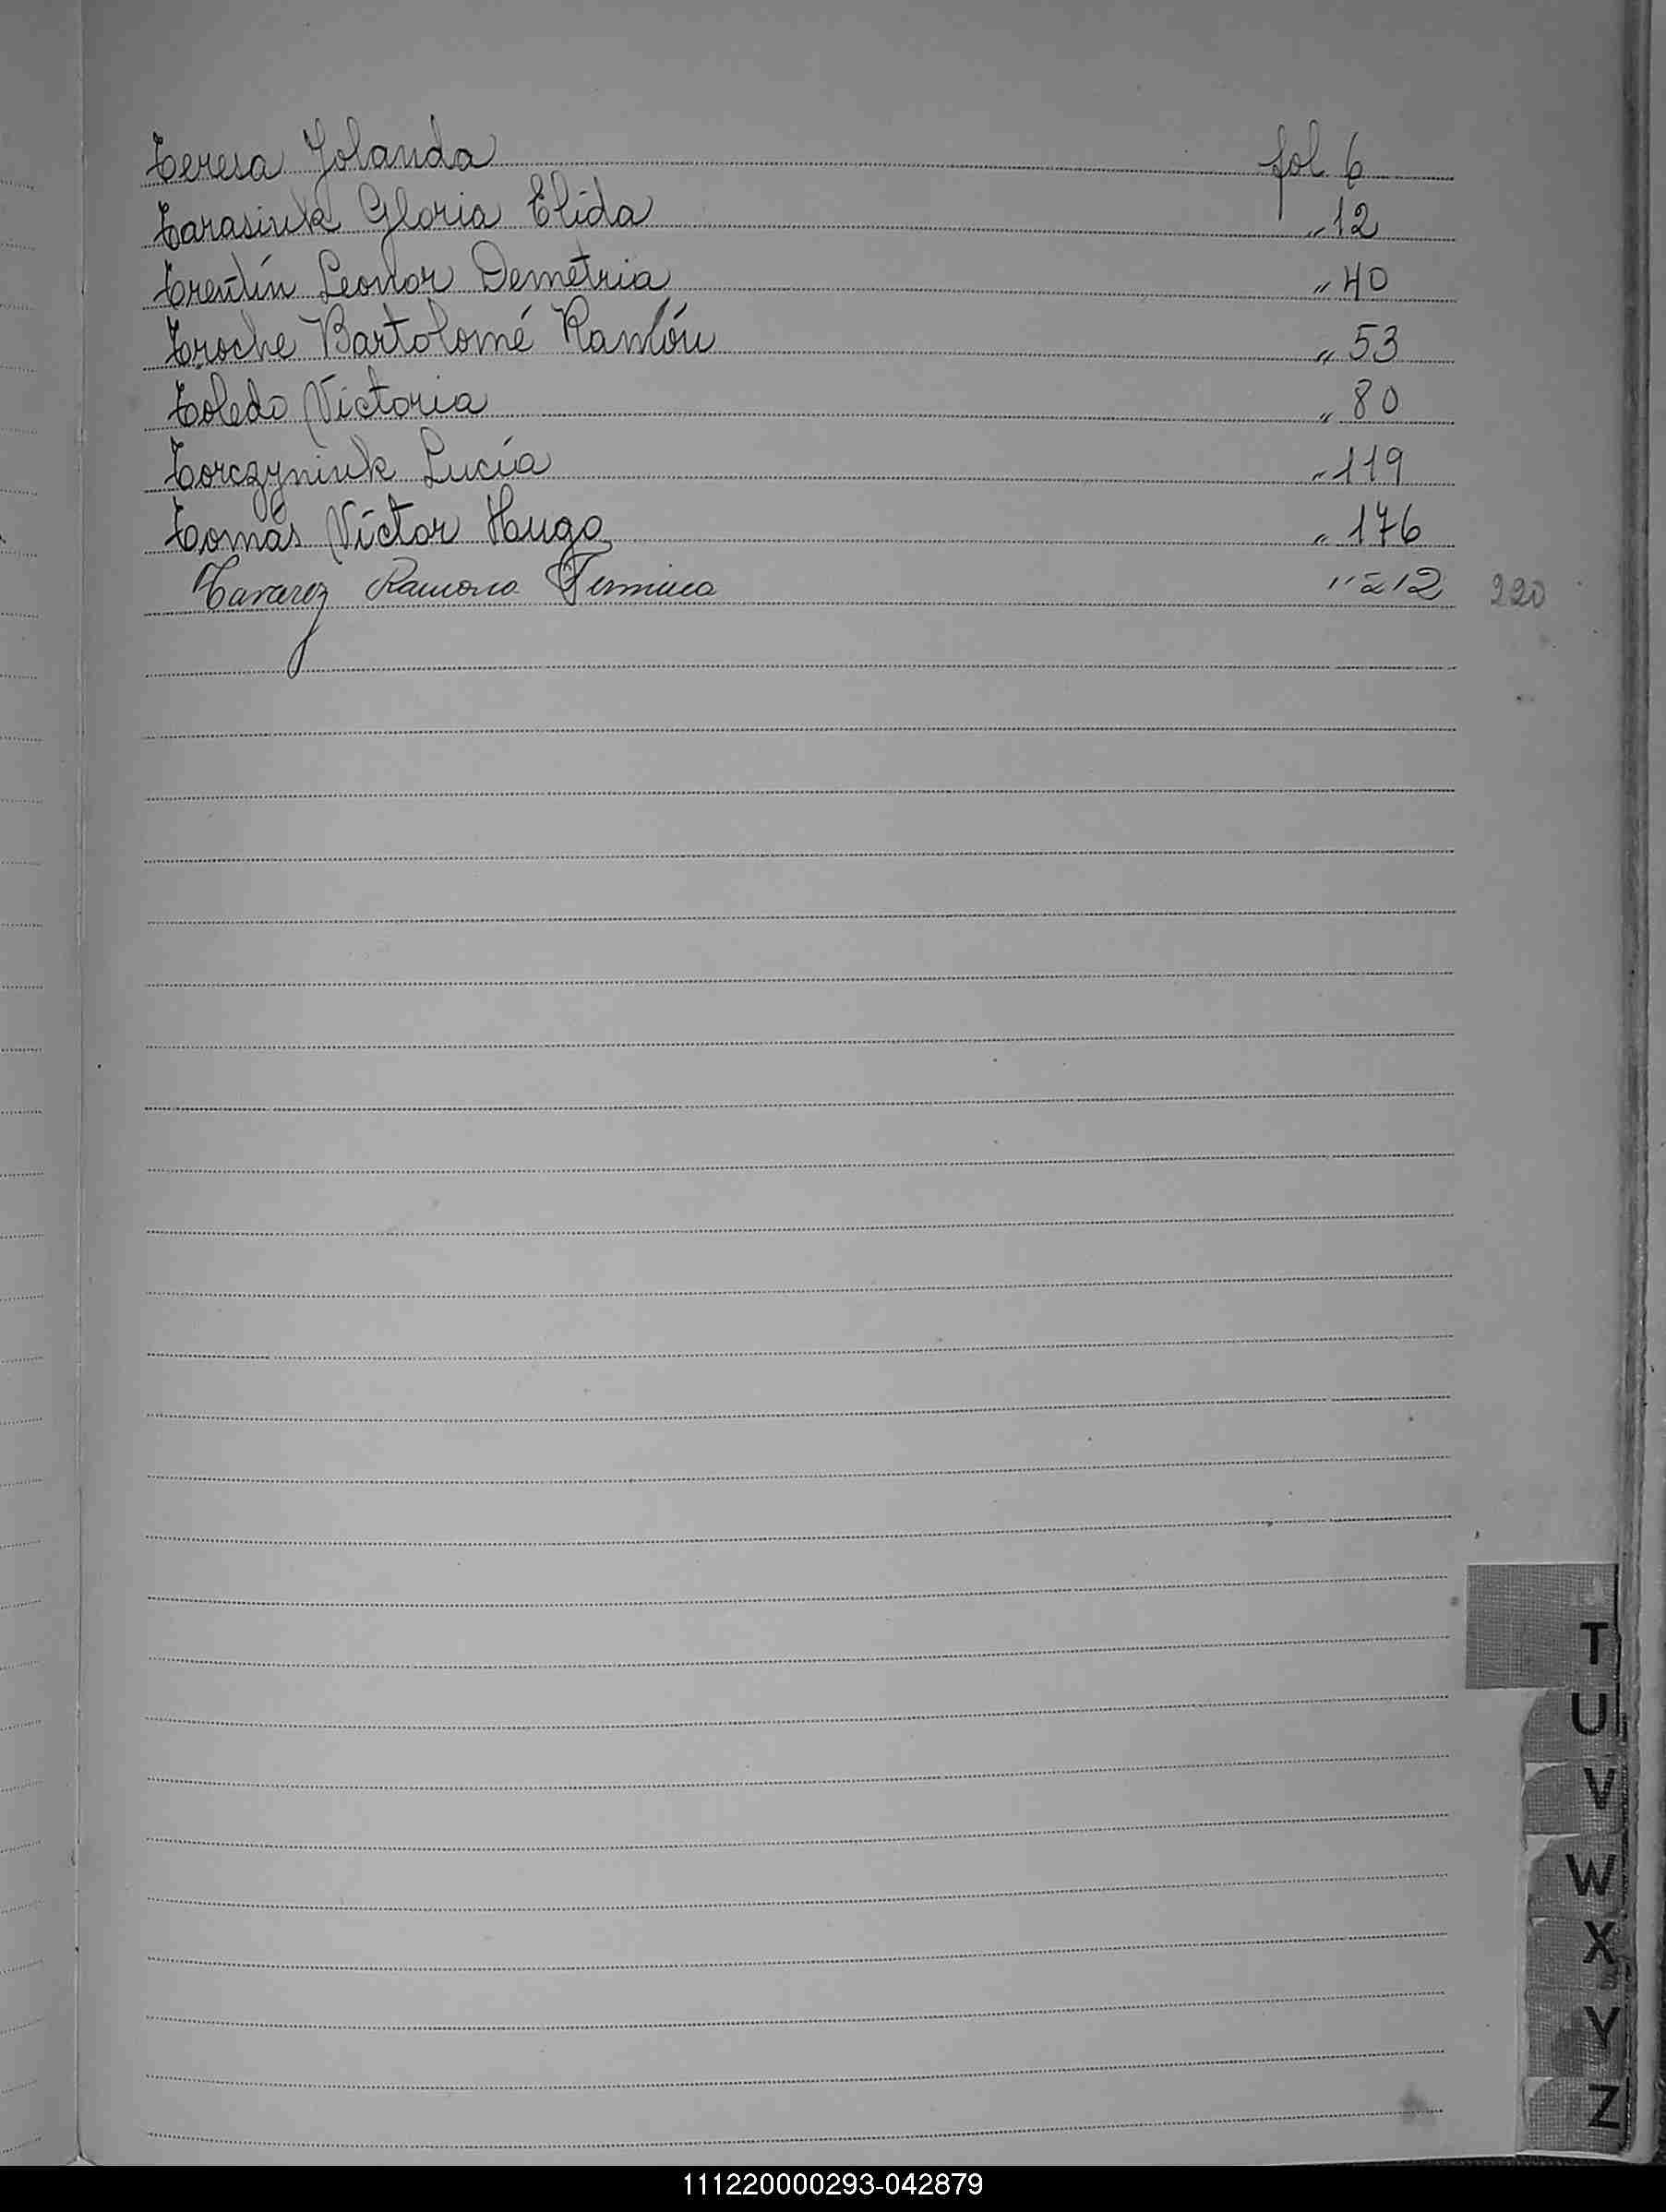 Teresa Yolanda fol. 6
Tarasiuk Gloria Elida " 12
Trentín Leonor Demetria " 40
Troche Bartolomé Ramón " 53
Toledo Victoria " 80
Torczyniuk Lucía " 119
Tomás Víctor Hugo " 176
Tavarez Ramona Fermina " 212 220
T
U
V
W
X
Y
Z
111220000293-042879